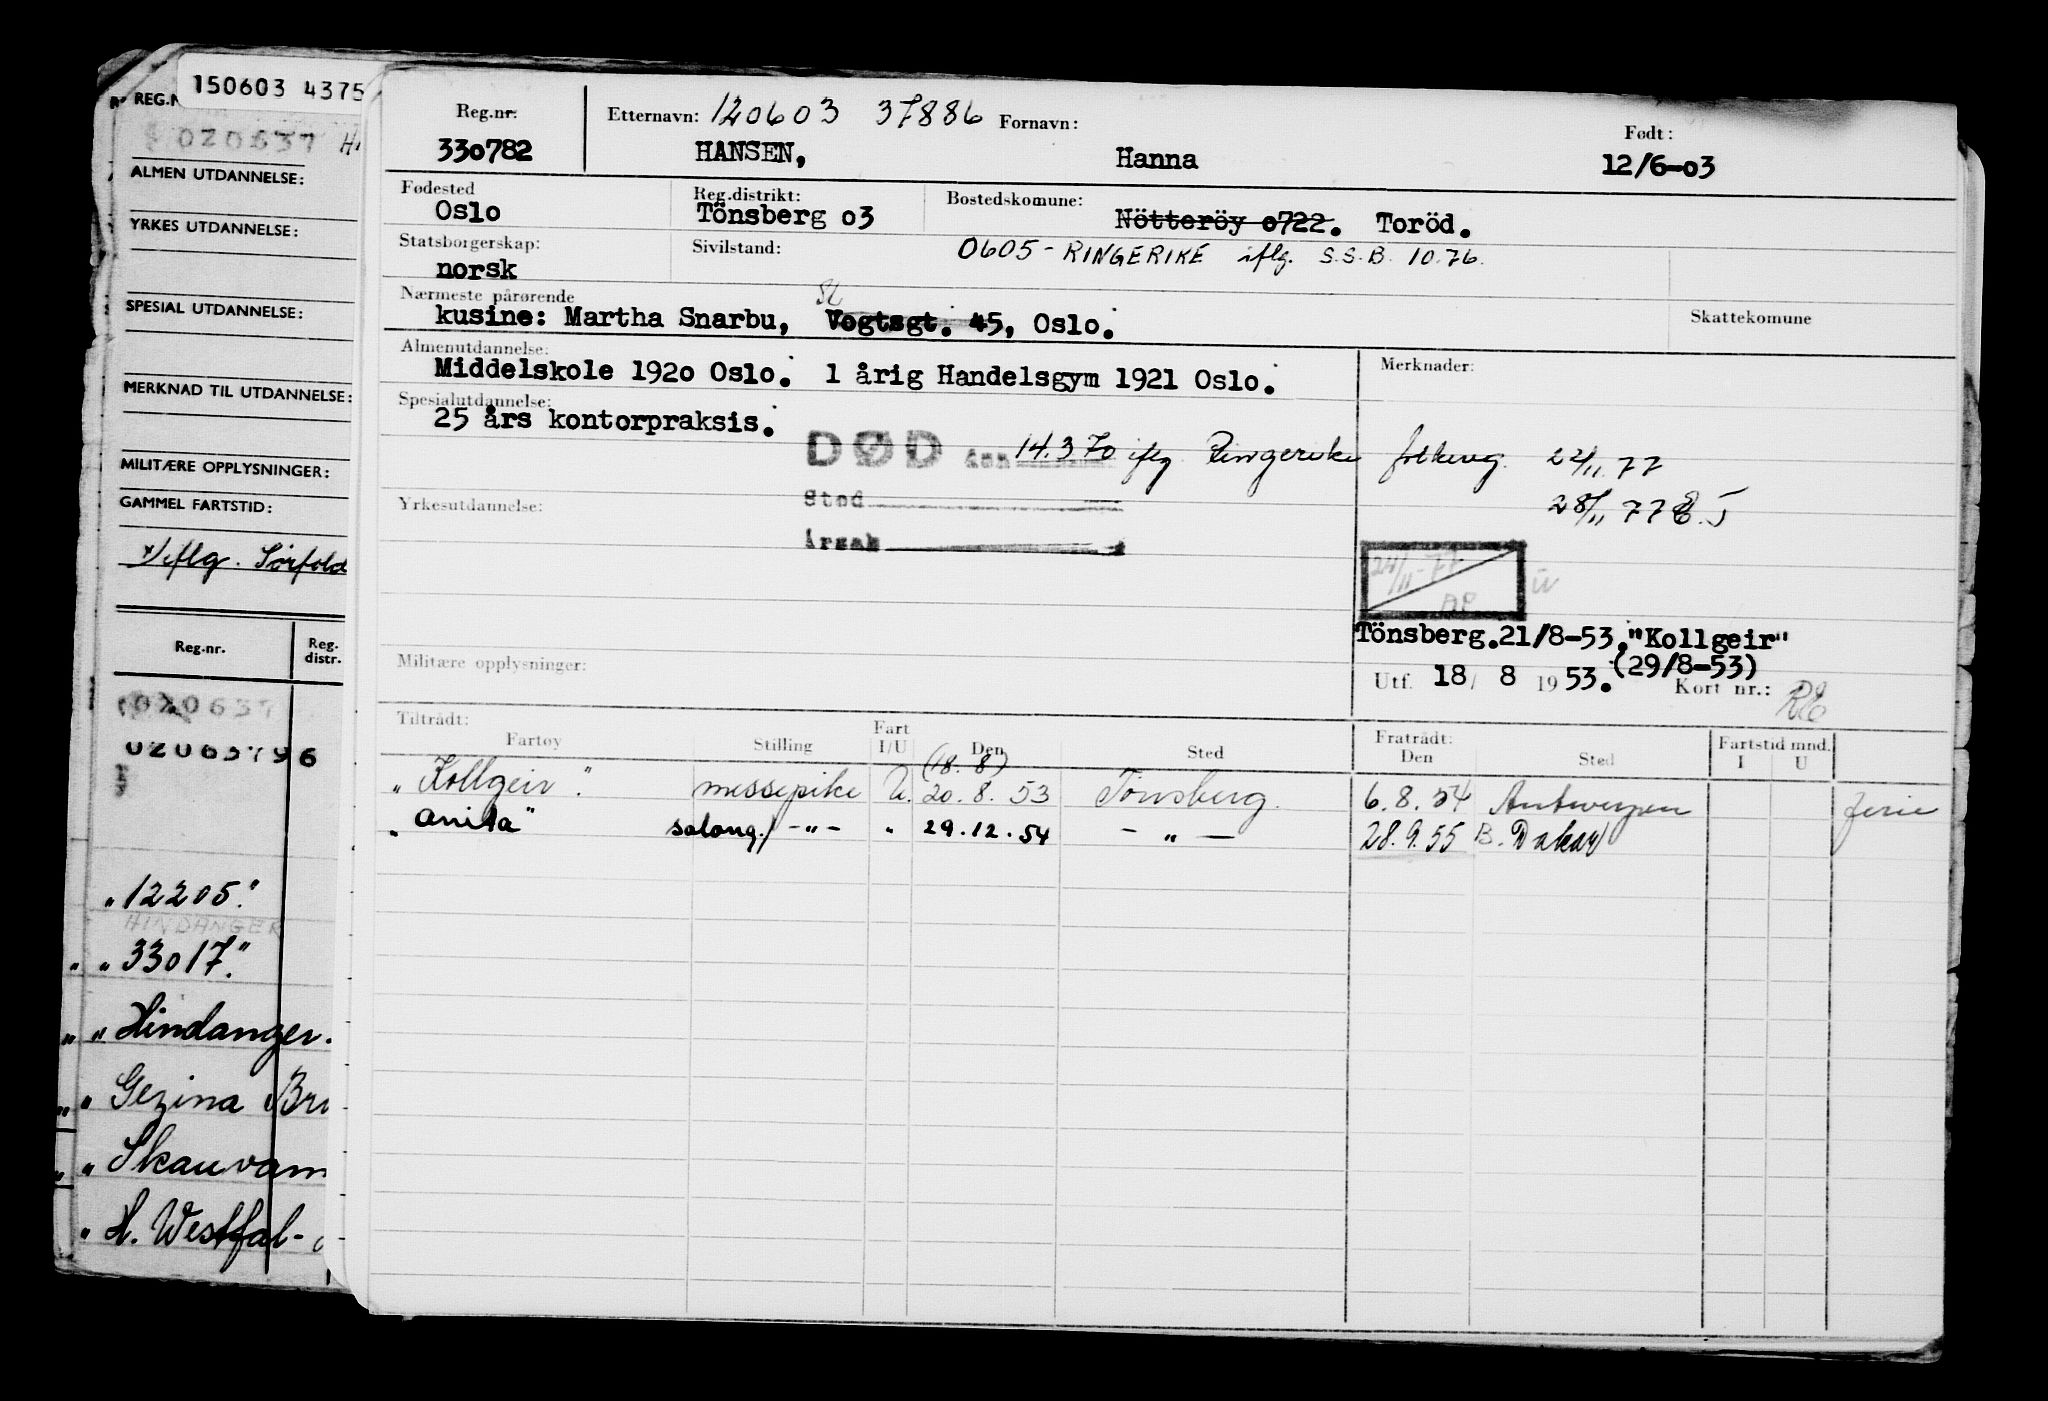 150603 4375
REG.N
020637 HA
ALMEN UTDANNELSE:
YRKES UTDANNELSE:
SPESIAL UTDANNELSE:
MERKNAD TIL UTDANNELSE:
MILITÆRE OPPLYSNINGER:
GAMMEL FARTSTID:
x) iflg. Sørfold
Reg.nr. Reg. distr.
020637
02063796
"12205."
HINDANGER
" "33017."
" " Hindanger.
" " Gezina Br
" " Skauvann
" H. Westfal-
Reg.nr. Etternavn: 120603 37886 Fornavn: Født:
330782 HANSEN, Hanna 12/6-03
Fødested Reg.distrikt: Bostedskomune:
Oslo Tönsberg 03 Nötteröy 0722. Toröd.
Statsborgerskap: Sivilstand: 0605 - RINGERIKE iflg. S.S.B. 10.76.
norsk
Nærmeste pårørende Skattekomune
kusine: Martha Snarbu, Vogtsgt. 45, Oslo.
Almenutdannelse: Merknader:
Middelskole 1920 Oslo. 1 årig Handelsgym 1921 Oslo.
Spesialutdannelse:
25 års kontorpraksis.
DØD den 14.3.70 iflg Ringerike folkereg. 22/11 77
Sted 28/11 77 E.J
Yrkesutdannelse:
Årsak
24/11-77
Tönsberg.21/8-53."Kollgeir"
Militære opplysninger: (29/8-53)
Utf. 18/ 8 1953. Kort nr.:
Tiltrådt: Fratrådt: Fartstid mnd.
Fartøy Stilling Fart I/U Den Sted Den Sted I U
(18.8)
"Kollgeir". messepike U. 20.8.53 Tønsberg. 6.8.54 Antwerpen ferie
"Anita" salong/ -"- " 29.12.54 - " - 28.9.55 B. Dakar